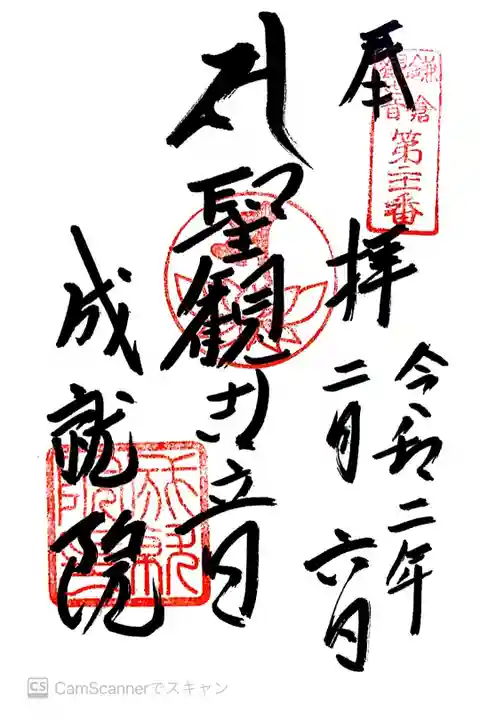 鎌倉
観音
第二十一番
奉拝
令和二年
二月六日
聖観世音
成就院
成就
院印
CamScannerでスキャン